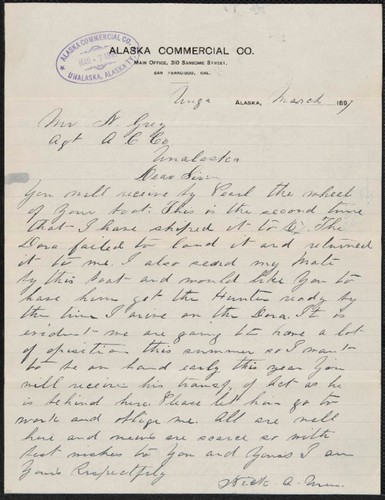 ALASKA COMMERCIAL CO.
UNALASKA, ALASKA
ALASKA COMMERCIAL CO.
MAIN OFFICE, 310 SANSOME STREET,
SAN FRANCISCO, CAL.
Unga ALASKA, March 1897
Mr N Grey
Agt A C Co
Unalaska
Dear Sir
You will receive by Pearl the wheel
of your boat. This is the second time
that I have shiped it to The
Dora failed to land it and returned
it to me. I also send my Mate
by this boat and would like you to
have him get the Hunter ready by
the time I arive on the Dora. It is
evident we are going to have a lot
of oposition this summer so I want
to be on hand early this year You
will receive his transfr of act as he
is behind here. Please let him go to
work and oblige me. All are well
here and news are scarce so with
best wishes to you and yours I am
Yours Respectfuly
Nick A.